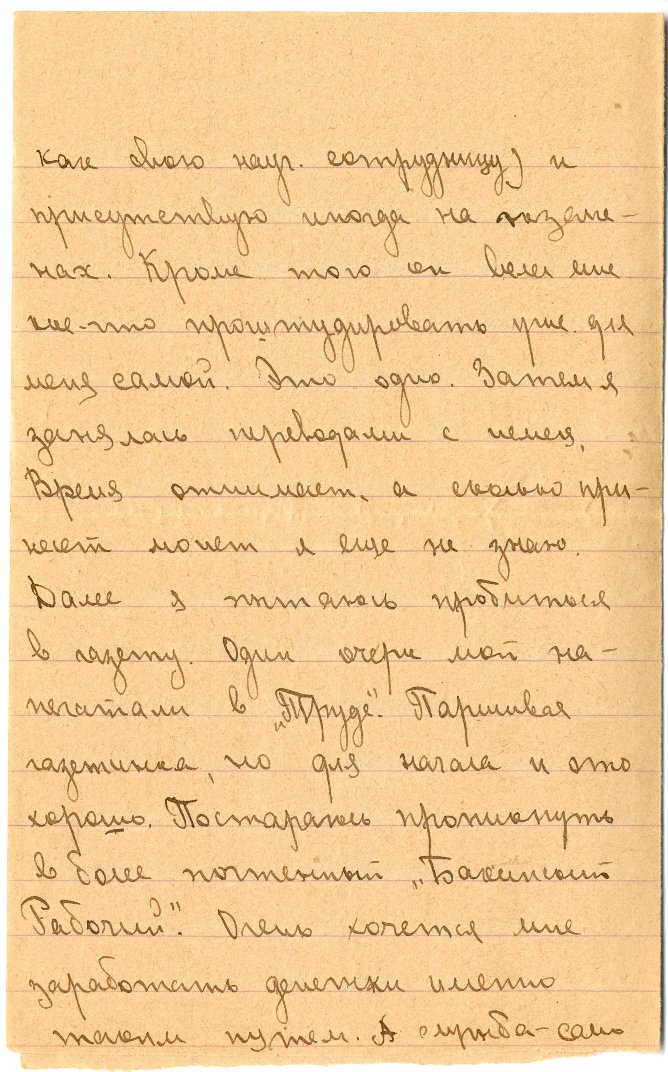 как свою науч. сотрудницу) и
присутствую иногда на экзаме-
нах. Кроме того он велел мне
кое-что проштудировать уже для
меня самой. Это одно. Затем я
занялась переводами с немец.
Время отнимает, а сколько при-
несет монет я еще не знаю.
Далее я пытаюсь пробиться
в газету. Один очерк мой на-
печатали в „Труде“. Паршивая
газетинка, но для начала и это
хорошо. Постараюсь проникнуть
в более почтенный „Бакинский
Рабочий“. Очень хочется мне
заработать денежки именно
таким путем. А служба-само